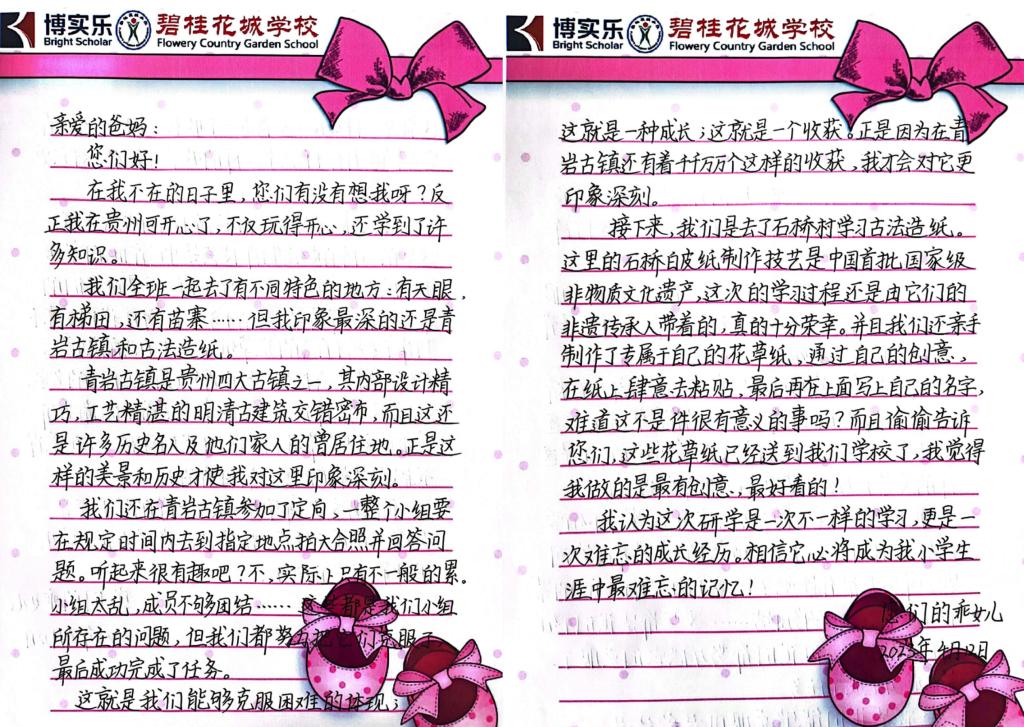 博实乐
Bright Scholar
碧桂花城学校
Flowery Country Garden School
亲爱的爸妈：
您们好！
在我不在的日子里，您们有没有想我呀？反
正我在贵州可开心了，不仅玩得开心，还学到了许
多知识。
我们全班一起去了有不同特色的地方：有天眼，
有梯田，还有苗寨……但我印象最深的还是青
岩古镇和古法造纸。
青岩古镇是贵州四大古镇之一，其内部设计精
巧，工艺精湛的明清古建筑交错密布，而且这还
是许多历史名人及他们家人的曾居住地。正是这
样的美景和历史才使我对这里印象深刻。
我们还在青岩古镇参加了定向，一整个小组要
在规定时间内去到指定地点拍大合照并回答问
题。听起来很有趣吧？不，实际上只有不一般的累。
小组太乱，成员不够团结……这些都是我们小组
所存在的问题，但我们都努力把它们克服了，
最后成功完成了任务。
这就是我们能够克服困难的体现；
博实乐
Bright Scholar
碧桂花城学校
Flowery Country Garden School
这就是一种成长；这就是一个收获。正是因为在青
岩古镇还有着千千万万个这样的收获，我才会对它更
印象深刻。
接下来，我们是去了石桥村学习古法造纸。
这里的石桥白皮纸制作技艺是中国首批国家级
非物质文化遗产，这次的学习过程还是由它们的
非遗传承人带着的，真的十分荣幸。并且我们还亲手
制作了专属于自己的花草纸，通过自己的创意，
在纸上肆意去粘贴，最后再在上面写上自己的名字，
难道这不是件很有意义的事吗？而且偷偷告诉
您们，这些花草纸已经送到我们学校了，我觉得
我做的是最有创意，最好看的！
我认为这次研学是一次不一样的学习，更是一
次难忘的成长经历，相信它必将成为我小学生
涯中最难忘的记忆！
们的乖女儿
年4月12日